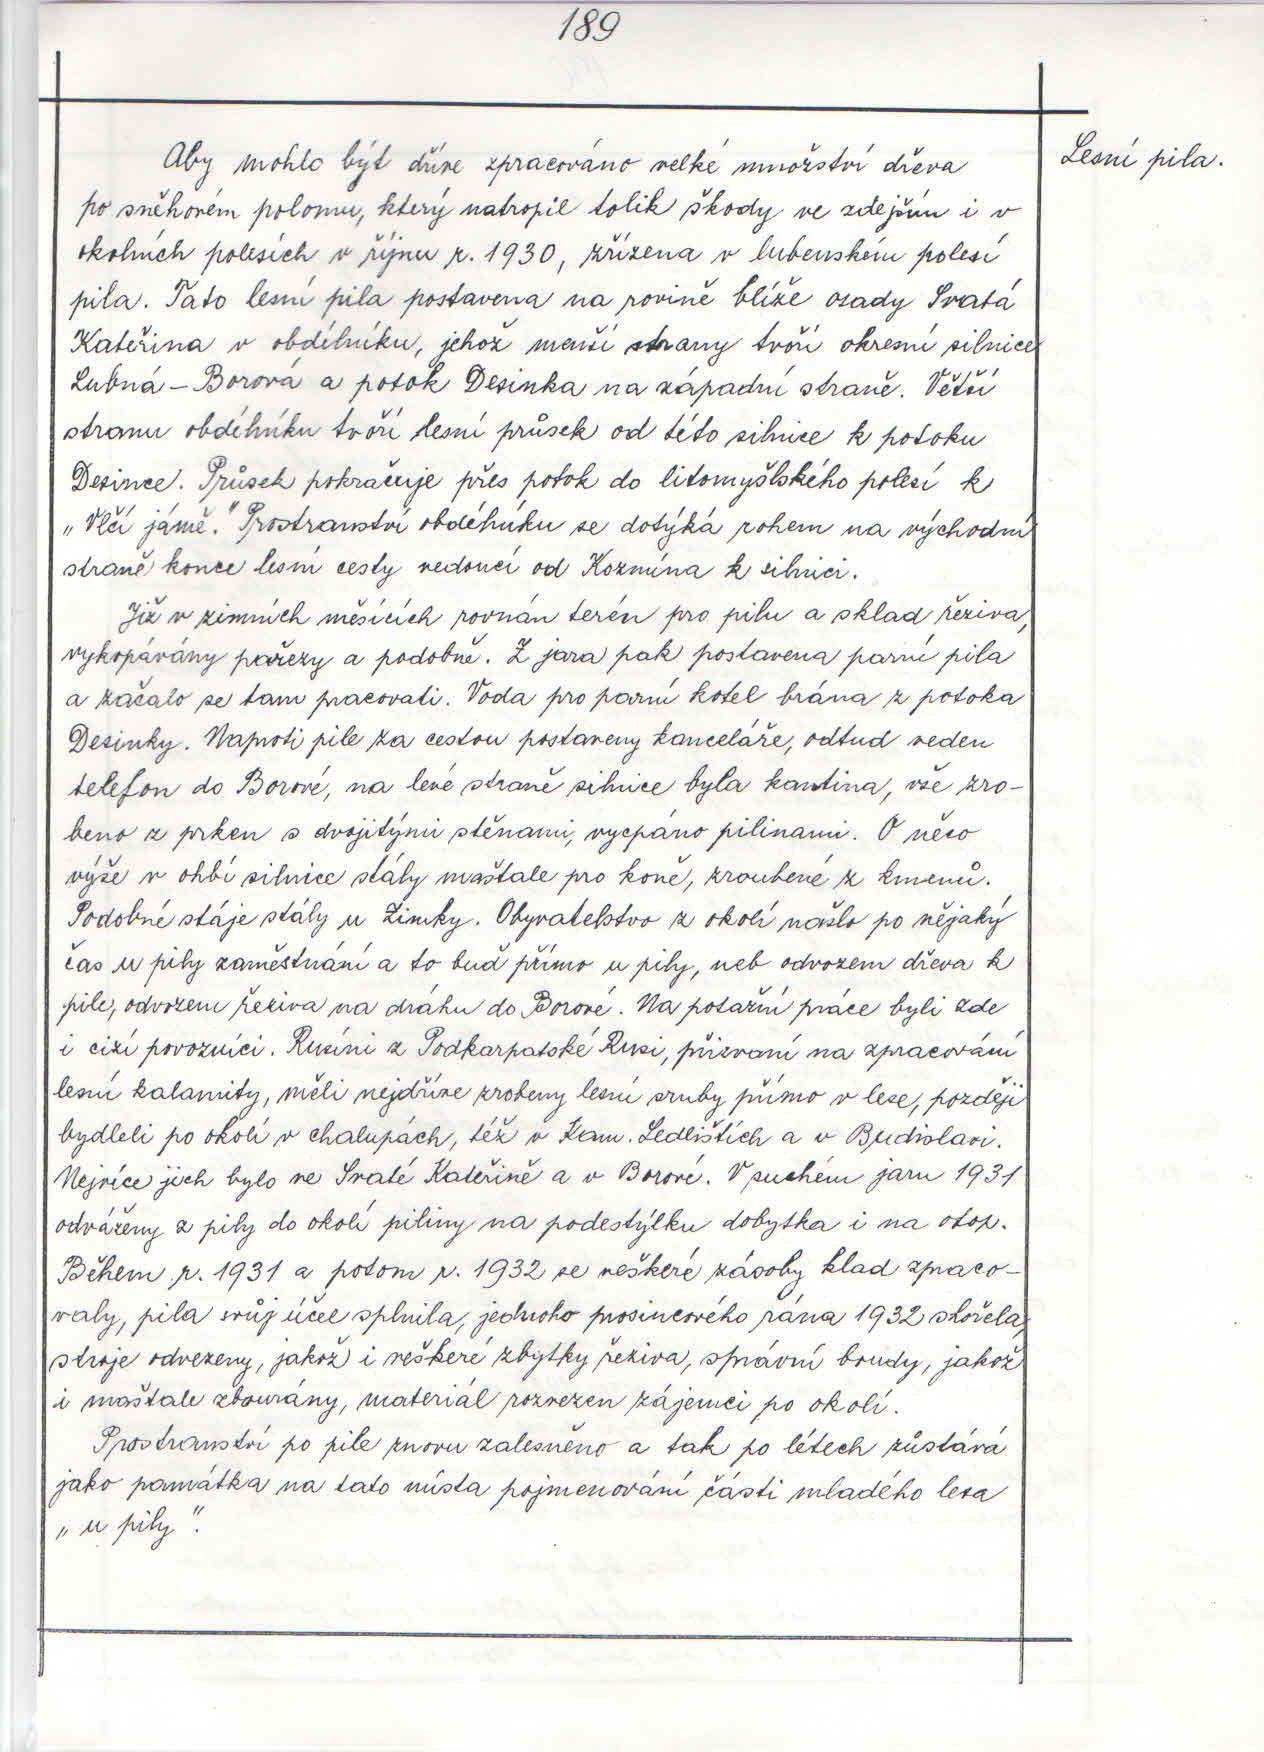 189
Lesní pila.
Aby mohlo být dříve zpracováno velké množství dřeva
po sněhovém polomu, který natropil tolik škody ve zdejším i v
okolních polesích v říjnu r. 1930, zřízena v lubenském polesí
pila. Tato lesní pila postavena na rovině blíže osady Svatá
Kateřina v obdélníku, jehož menší strany tvoří okresní silnice
Lubná – Borová a potok Desinka na západní straně. Větší
stranu obdélníku tvoří lesní průsek od této silnice k potoku
Desince. Průsek pokračuje přes potok do litomyšlského polesí k
„Vlčí jámě." Prostranství obdélníku se dotýká rohem na východní
straně konce lesní cesty vedoucí od Kozmína k silnici.
Již v zimních měsících rovnán terén pro pilu a sklad řeziva,
vykopávány pařezy a podobně. Z jara pak postavena parní pila
a začalo se tam pracovati. Voda pro parní kotel brána z potoka
Desinky. Naproti pile za cestou postaveny kanceláře, odtud veden
telefon do Borové, na levé straně silnice byla kantina, vše zro-
beno z prken s dvojitými stěnami, vycpáno pilinami. O něco
výše v ohbí silnice stály maštale pro koně, zroubené z kmenů.
Podobné stáje stály u Zimky. Obyvatelstvo z okolí našlo po nějaký
čas u pily zaměstnání a to buď přímo u pily, neb odvozem dřeva k
pile, odvozem řeziva na dráhu do Borové. Na potažní práce byli zde
i cizí povozníci. Rusíni z Podkarpatské Rusi, přizvaní na zpracování
lesní kalamity, měli nejdříve zrobeny lesní sruby přímo v lese, později
bydleli po okolí v chalupách, též v Kam. Sedlištích a v Budislavi.
Nejvíce jich bylo ve Svaté Kateřině a v Borové. V suchém jaru 1931
odváženy z pily do okolí piliny na podestýlku dobytka i na otop.
Během r. 1931 a potom r. 1932 se veškeré zásoby klad zpraco-
valy, pila svůj účel splnila, jednoho prosincového rána 1932 shořela,
stroje odvezeny, jakož i veškeré zbytky řeziva, správní boudy, jakož
i maštale zbourány, materiál rozvezen zájemci po okolí.
Prostranství po pile znovu zalesněno a tak po létech zůstává
jako památka na tato místa pojmenování části mladého lesa
„u pily".